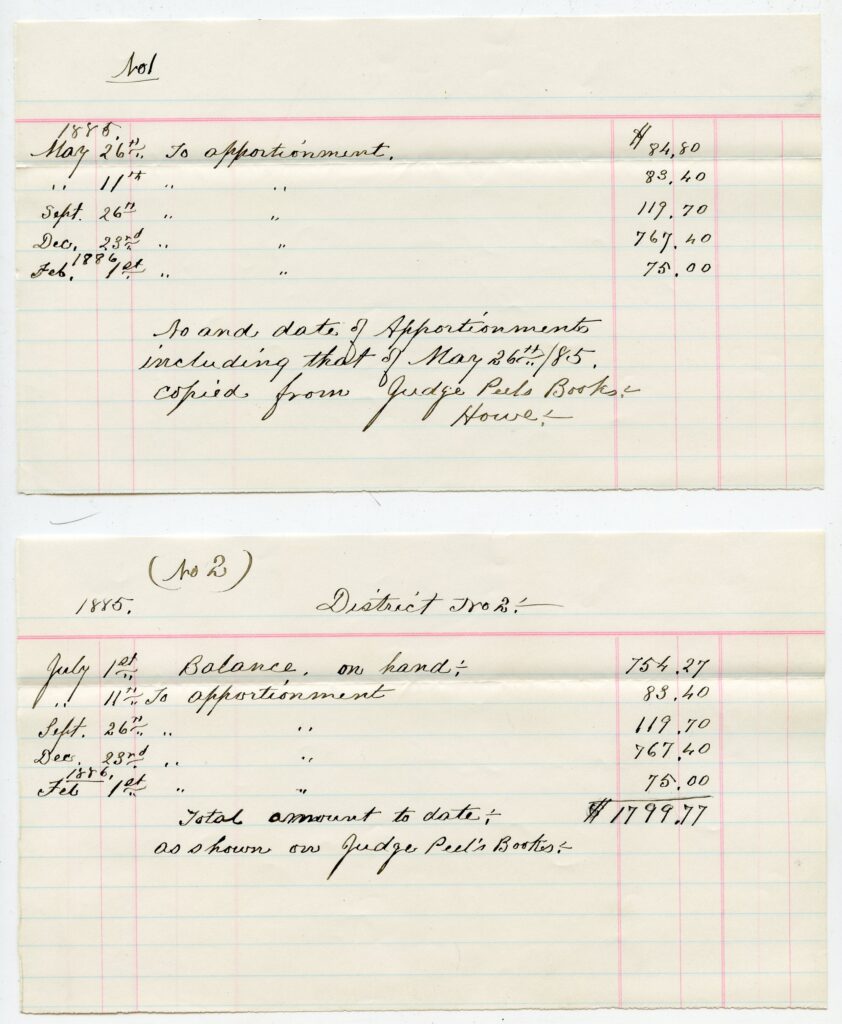 No 1
1885.
May 26th To apportionment. $ 84.80
" 11th " " 83.40
Sept. 26th " " 119.70
Dec. 23rd " " 767.40
1886
Feb. 1st " " 75.00
No and date of Apportionments
including that of May 26th/85.
copied from Judge Peels Books:-
Howe:-
(No 2)
1885. District No 2:-
July 1st Balance. on hand:- 754.27
" 11th To apportionment 83.40
Sept. 26th " " 119.70
Dec. 23rd " " 767.40
1886,
Feb 1st " " 75.00
Total amount to date:- $1799.77
as shown on Judge Peel's Books:-